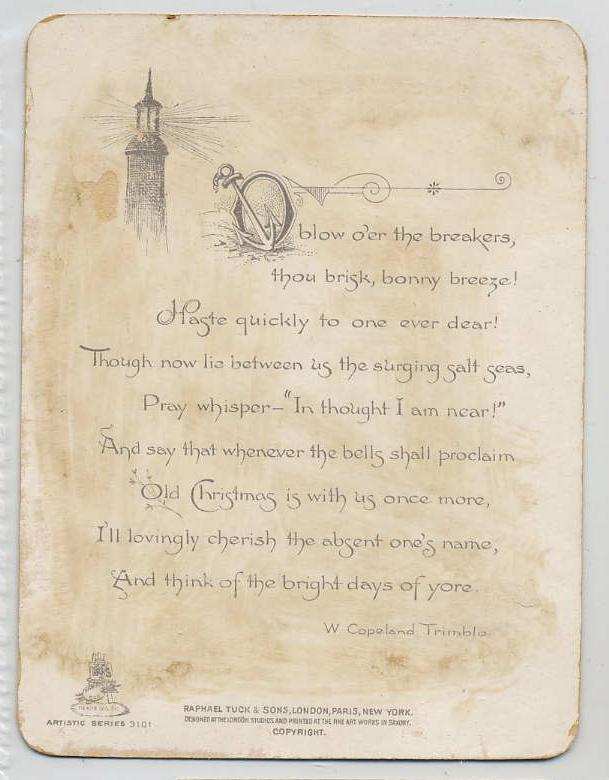 O blow o'er the breakers,
thou brisk, bonny breeze!
Haste quickly to one ever dear!
Though now lie between us the surging salt seas,
Pray whisper–"In thought I am near!"
And say that whenever the bells shall proclaim
Old Christmas is with us once more,
I'll lovingly cherish the absent one's name,
And think of the bright days of yore.
W Copeland Trimble.
TRADE MARK
ARTISTIC SERIES 3101
RAPHAEL TUCK & SONS, LONDON, PARIS, NEW YORK.
DESIGNED AT THE LONDON STUDIOS AND PRINTED AT THE FINE ART WORKS IN SAXONY.
COPYRIGHT.